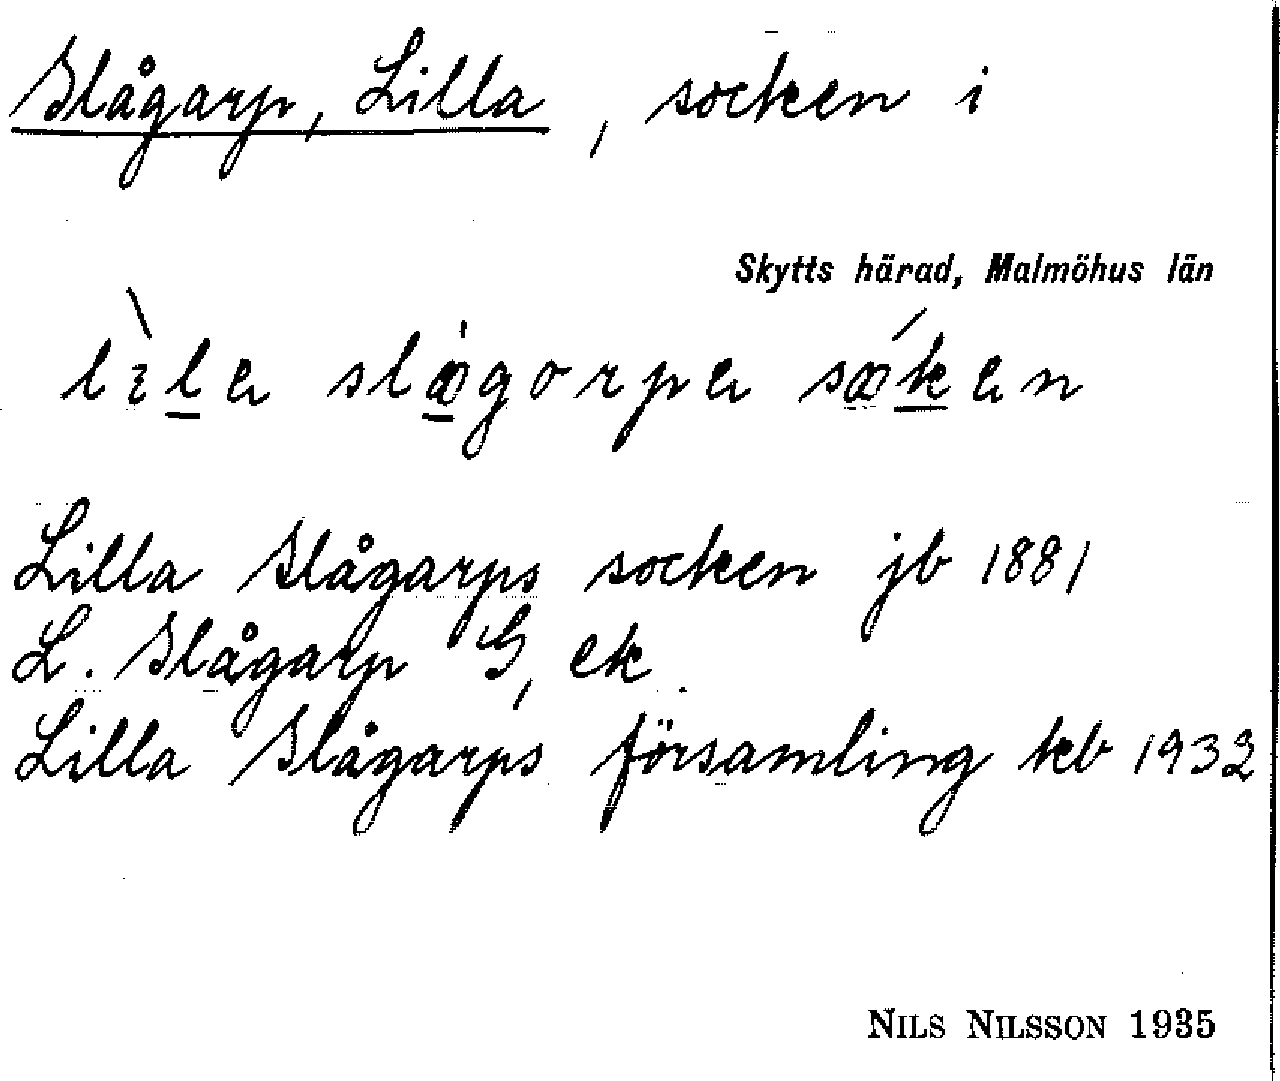 Slågarp, Lilla, socken i
Skytts härad, Malmöhus län
Lilla Slågarps socken jb 1881
L. Slågarp G, ek
Lilla Slågarps församling kb 1932
NILS NILSSON 1935